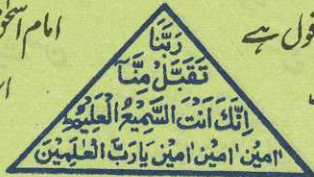 امام
قول ہے
رَبَّنَا
تَقَبَّلْ مِنَّا
اِنَّكَ اَنْتَ السَّمِيْعُ الْعَلِيْمُط
اٰمِيْن اٰمِيْن اٰمِيْن يَارَبَّ الْعٰلَمِيْنَ